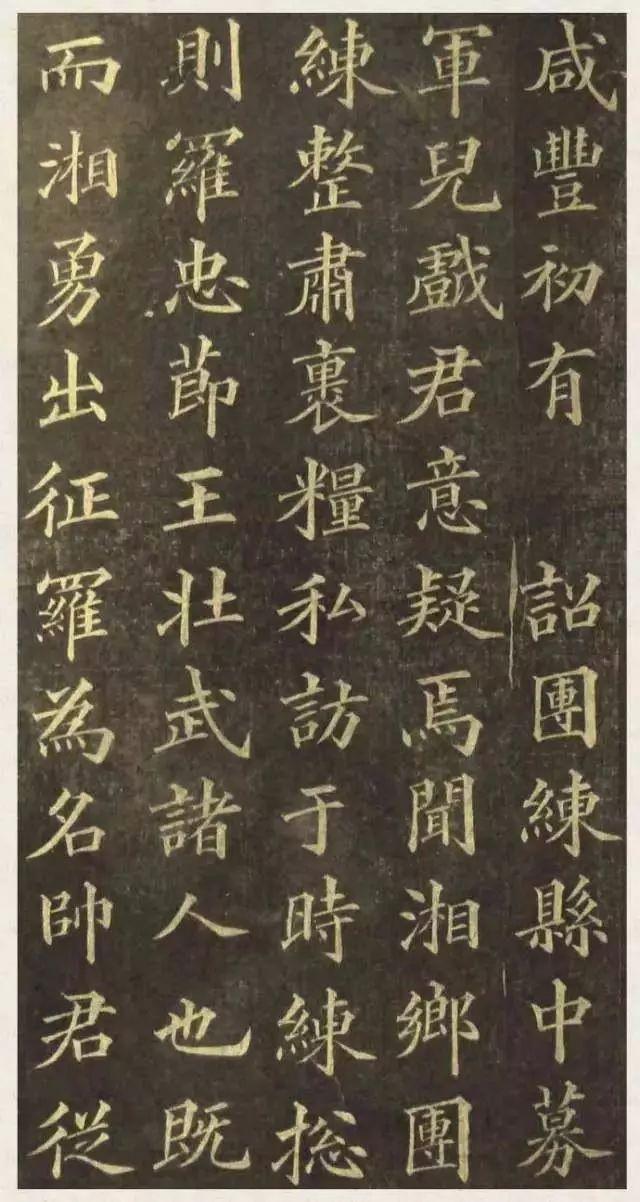 咸豐初有 詔團練縣中募
軍兒戲君意疑焉聞湘鄉團
練整肅裹糧私訪于時練揔
則羅忠節王壯武諸人也既
而湘勇出征羅為名帥君從